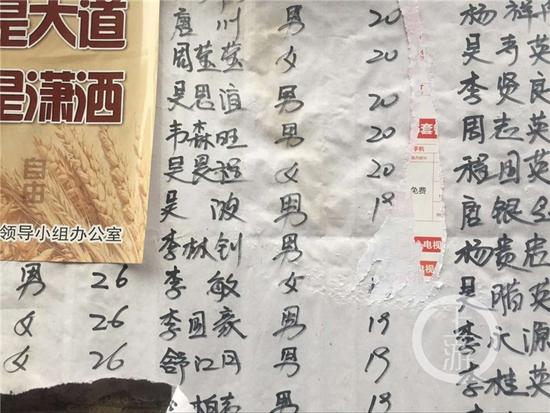 是大道
是潇洒
自由
领导小组办公室
男 26
女 26
女 26
唐 川 男 20
周莹莹 女 20
吴恩谊 男 20
韦森旺 男 20
吴恩程 女 20
吴 波 男 19
李林钊 男
李 敏 女
李国豪 男 19
舒江丹 男 19
男 19
套餐
手机
免费
电视
电视
杨祥
吴专英
李贤良
周志英
程国英
唐银
杨贵忠
吴腊英
李永源
李桂英
上游